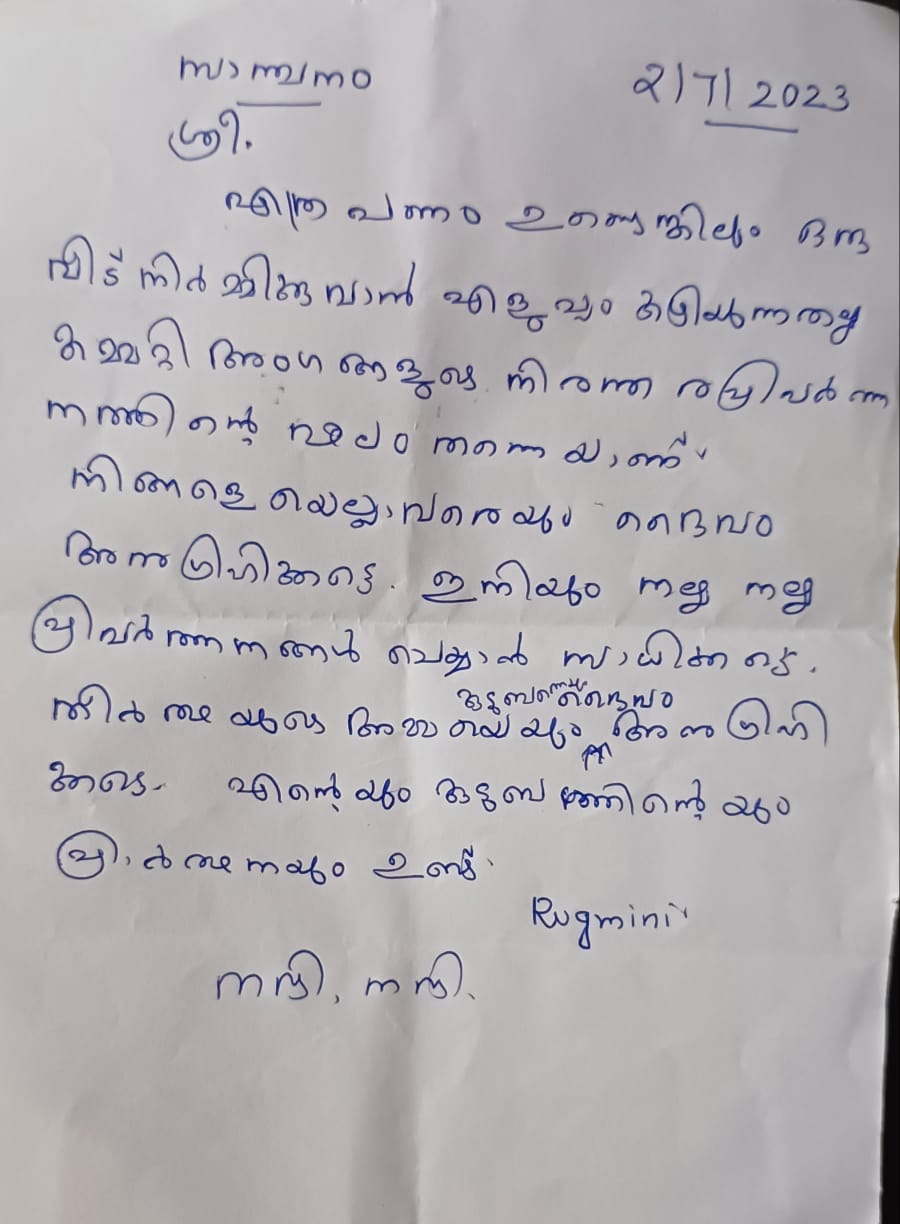 സാന്ത്വനം 2/7/2023
ശ്രീ.
എത്ര പണം ഉണ്ടെങ്കിലും ഒരു
വീട് നിർമ്മിക്കുവാൻ എളുപ്പം കഴിയുന്നതല്ല
കമ്മറ്റി അംഗങ്ങളുടെ നിരന്തര പ്രവർത്ത
നത്തിന്റെ ഫലം തന്നെയാണ്
നിങ്ങളെയെല്ലാവരെയും ദൈവം
അനുഗ്രഹിക്കട്ടെ. ഇനിയും നല്ല നല്ല
പ്രവർത്തനങ്ങൾ ചെയ്യാൻ സാധിക്കട്ടെ.
ദൈവം
അമ്മയെയും അനുഗ്രഹി
ക്കട്ടെ. എന്റെയും കുടുബത്തിന്റെയും
പ്രാർത്ഥനയും ഉണ്ട്
Rugmini
നന്ദി, നന്ദി.